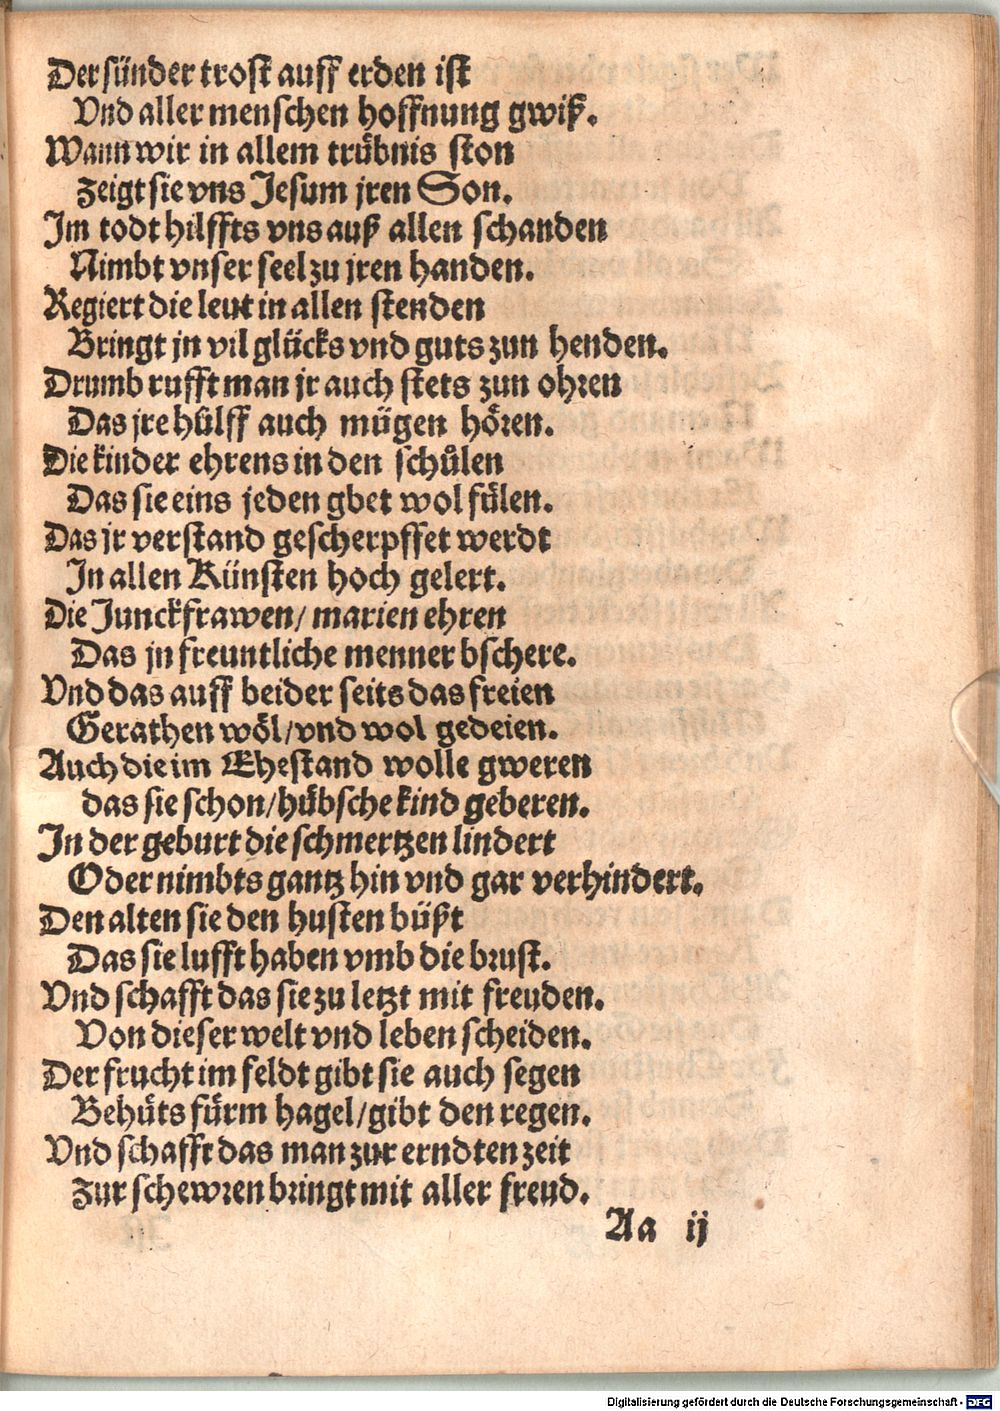 Der sünder trost auff erden ist
Vnd aller menschen hoffnung gwiß.
Wann wir in allem trübnis ston
Zeigt sie vns Jesum jren Son.
Im todt hilffts vns auß allen schanden
Nimbt vnser seel zu jren handen.
Regiert die leut in allen stenden
Bringt jn vil glücks vnd guts zun henden.
Drumb rufft man jr auch stets zun ohren
Das jre hülff auch mügen hören.
Die kinder ehrens in den schůlen
Das sie eins jeden gbet wol fülen.
Das jr verstand gescherpffet werdt
In allen Künsten hoch gelert.
Die Junckfrawen/ marien ehren
Das jn freuntliche menner bschere.
Vnd das auff beider seits das freien
Gerathen wöl/ vnd wol gedeien.
Auch die im Ehestand wolle gweren
das sie schon/ hübsche kind geberen.
In der geburt die schmertzen lindert
Oder nimbts gantz hin vnd gar verhindert.
Den alten sie den husten büßt
Das sie lufft haben vmb die brust.
Vnd schafft das sie zu letzt mit freuden.
Von dieser welt vnd leben scheiden.
Der frucht im feldt gibt sie auch segen
Behüts fürm hagel/ gibt den regen.
Vnd schafft das man zur erndten zeit
Zur schewren bringt mit aller freud.
Aa ij
Digitalisierung gefördert durch die Deutsche Forschungsgemeinschaft - DFG